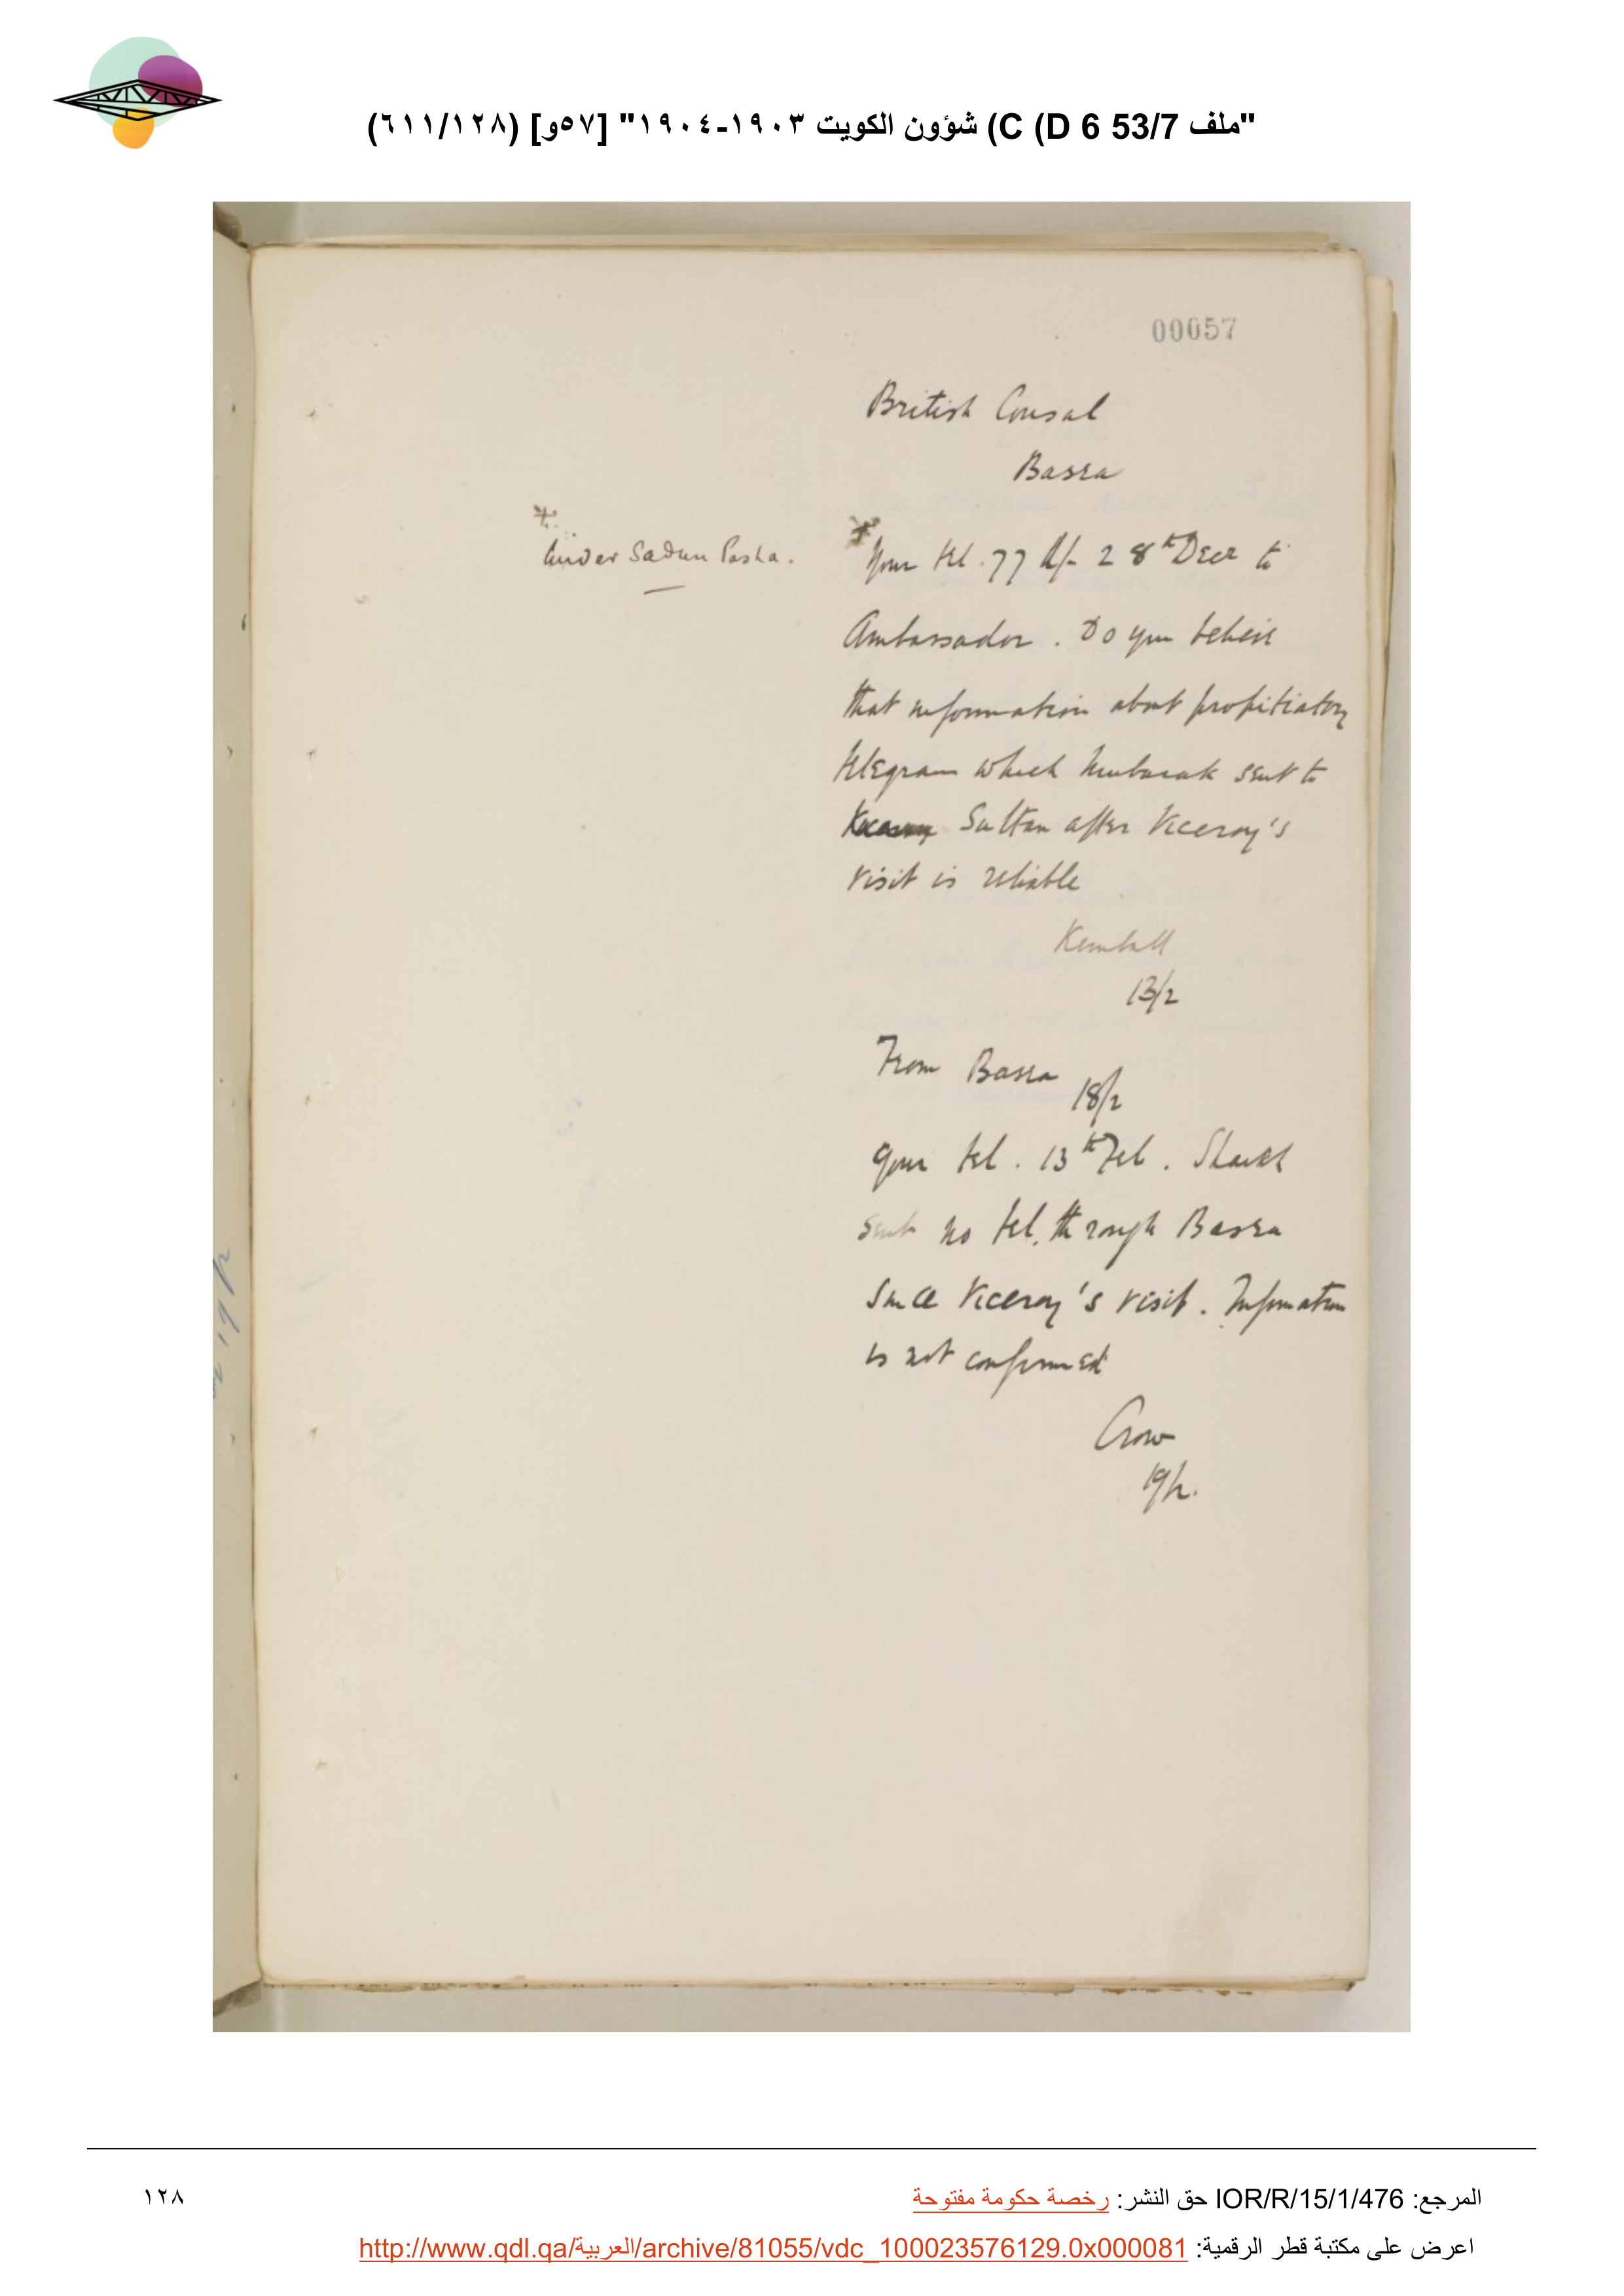 "ملف 53/7 C (D 6) شؤون الكويت ١٩٠٣-١٩٠٤" [٥٧و] (٦١١/١٢٨)
00057
British Consul
Basra
Under Sadun Pasha.
Your tel. 77 d/- 28th Decr to
Ambassador. Do you believe
that information about propitiatory
telegram which Mubarak sent to
Sultan after Viceroy's
visit is reliable
Kemball
13/2
From Basra
18/2
Your tel. 13th Feb. Shaikh
sent no tel. through Basra
since Viceroy's visit. Information
is not confirmed
Crow
19/2.
المرجع: IOR/R/15/1/476 حق النشر: رخصة حكومة مفتوحة
١٢٨
اعرض على مكتبة قطر الرقمية: http://www.qdl.qa/العربية/archive/81055/vdc_100023576129.0x000081